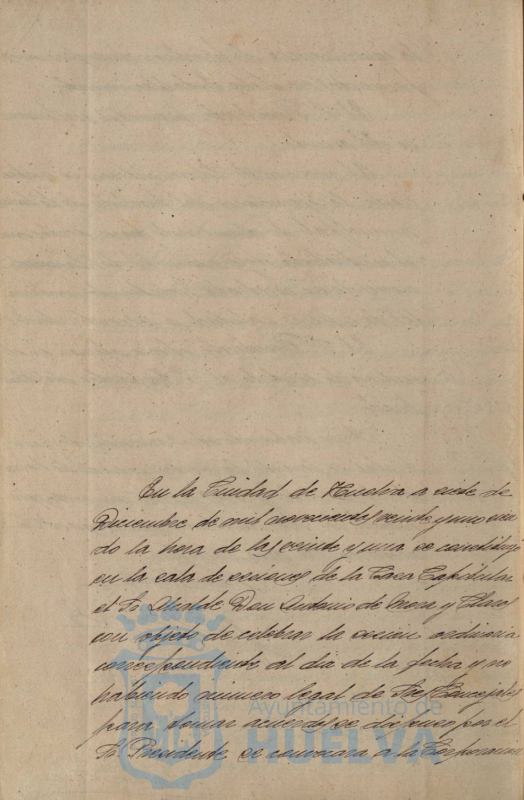 En la Ciudad de Huelva a siete de
Diciembre de mil novecientos veinte y uno sien
do la hora de las veinte y una se constituyó
en la sala de sesiones de la Casa Capitular
el Sr Alcalde Don Antonio de Mora y Claros
con objeto de celebrar la sesion ordinaria
correspondiente al dia de la fecha y no
habiendo numero legal de Sres Concejales
para tomar acuerdos se dispuso por el
Sr Presidente se convocara a la Corporacion
Ayuntamiento de
HUELVA